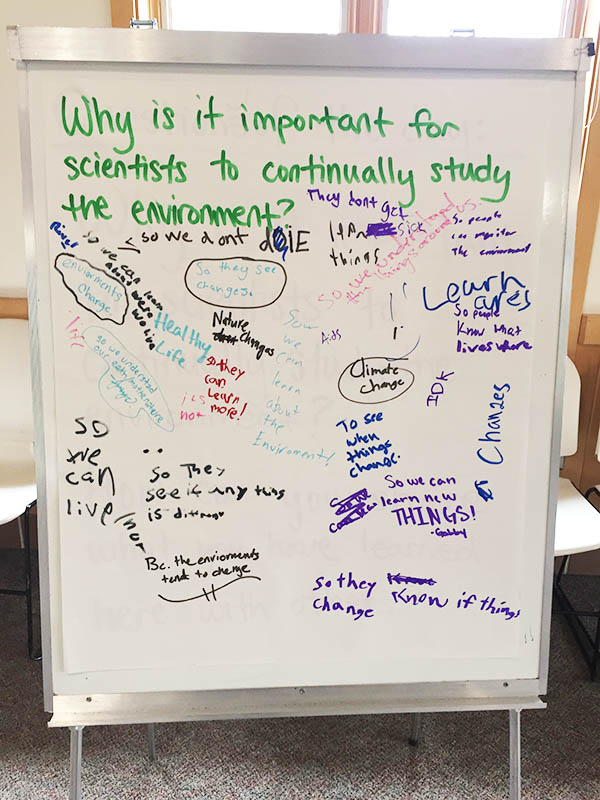 Why is it important for
scientists to continually study
the environment?
They dont get
sick
things
So we understand
the things around us.
So people
can monitor
The environment
so we dont
DIE
so we can learn
about were
we live
enviorments
change
So they see
changes.
Learn
So people
Know that
lives where
Healthy
Life
Nature
Changes
so they
can
Learn
more!
Sow
we
can
learn
about
the
Enviroment!
Aids
Climate
change
IDK
so we understand
change?
its
not
To see
when
things
change.
Changes
SO
we
can
live/not
So They
see if any thing
is different
So we can
learn new
THINGS!
-Gabby
Bc. the enviorments
tend to change
So they Know if things
change